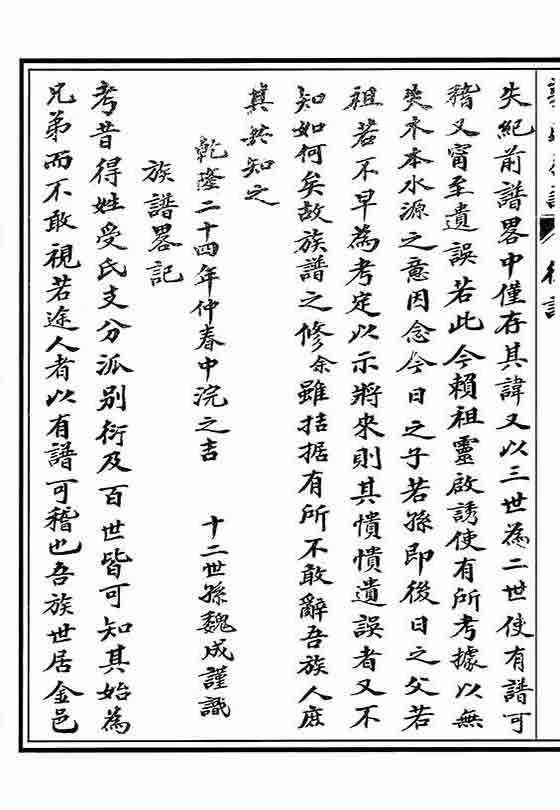 失紀前譜畧中僅存其諱又以三世為二世使有譜可
稽又甯至遺誤若此今賴祖靈啟誘使有所考據以無
失木本水源之意因念今日之子若孫即後日之父若
祖若不早為考定以示將來則其憒憒遺誤者又不
知如何矣故族譜之修余雖拮据有所不敢辭吾族人庶
其共知之
乾隆二十四年仲春中浣之吉 十二世孫魏成謹識
族譜畧記
考昔得姓受氏支分派别衍及百世皆可知其始為
兄弟而不敢視若途人者以有譜可稽也吾族世居金邑